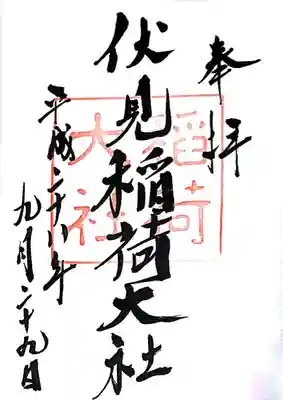 奉拝
伏見稲荷大社
平成二十八年
九月二十九日
稲荷
大社